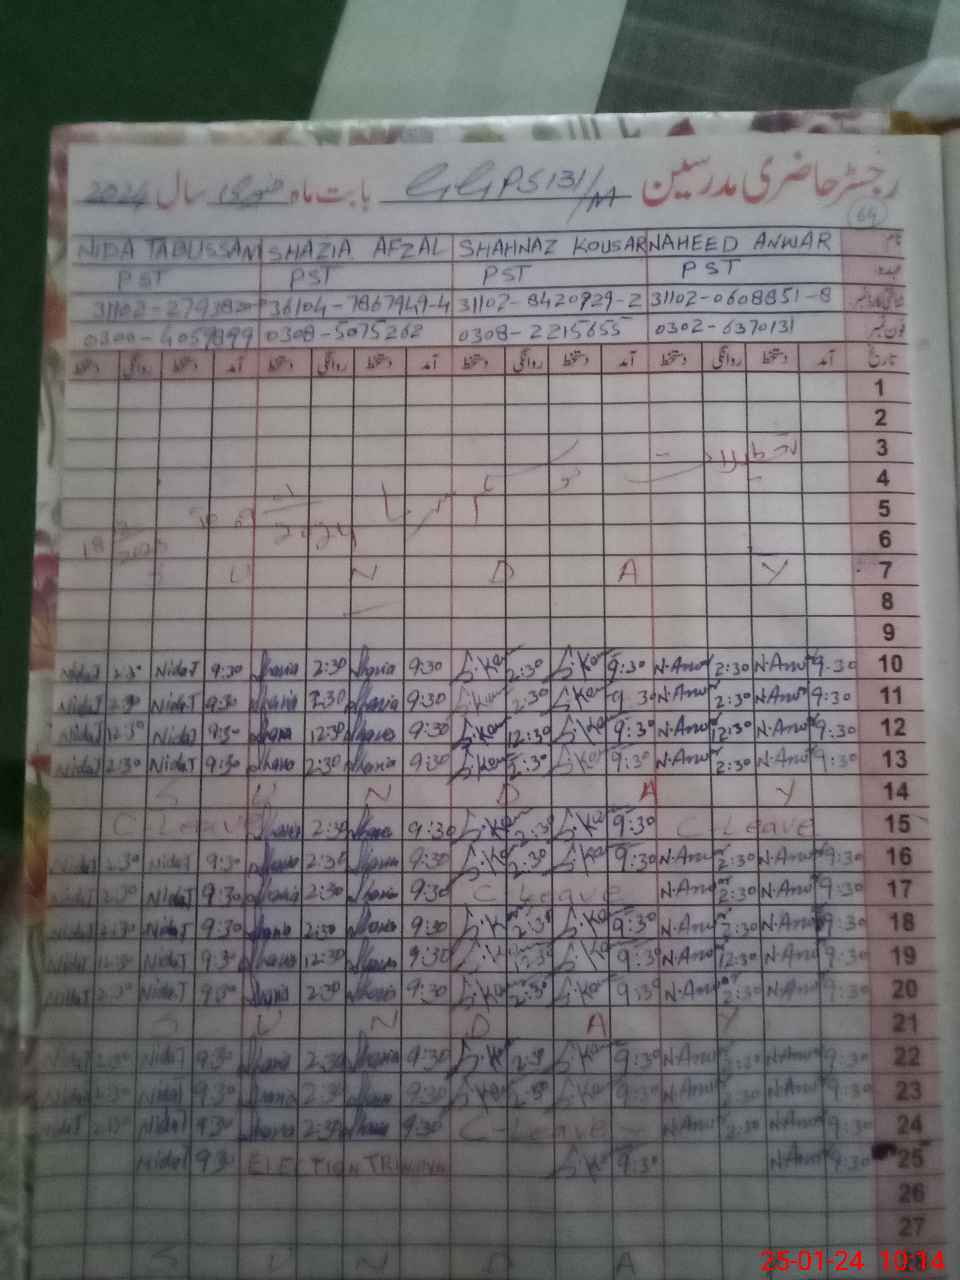 رجسٹر حاضری مدرسین GGPS 131/M بابت ماہ جنوری سال 2024
64
NIDA TABUSSAM SHAZIA AFZAL SHAHNAZ KOUSAR NAHEED ANWAR نام
PST PST PST PST عہدہ
36104-7867949-4 31102-8420929-2 31102-0608851-8
0300-4059899 0308-5075262 0308-2215655 0302-6370131 فون نمبر
دستخط روانگی دستخط آمد دستخط روانگی دستخط آمد دستخط روانگی دستخط آمد دستخط روانگی دستخط آمد تاریخ
1
2
3
4
5
2024
6
S U N D A Y 7
8
9
NidaT 2:30 NidaT 9:30 Shazia 2:30 Shazia 9:30 S.Kou 2:30 S.Kou 9:30 N.Anwar 2:30 N.Anwar 9:30 10
NidaT 2:30 NidaT 9:30 Shazia 2:30 Shazia 9:30 S.Kou 2:30 S.Kou 9:30 N.Anwar 2:30 N.Anwar 9:30 11
NidaT 12:30 NidaT 9:30 Shazia 12:30 Shazia 9:30 S.Kou 12:30 S.Kou 9:30 N.Anwar 12:30 N.Anwar 9:30 12
NidaT 2:30 NidaT 9:30 Shazia 2:30 Shazia 9:30 S.Kou 2:30 S.Kou 9:30 N.Anwar 2:30 N.Anwar 9:30 13
S U N D A Y 14
C-Leave Shazia 2:30 Shazia 9:30 S.Kou 2:30 S.Kou 9:30 C-Leave 15
NidaT 2:30 NidaT 9:30 Shazia 2:30 Shazia 9:30 S.Kou 2:30 S.Kou 9:30 N.Anwar 2:30 N.Anwar 9:30 16
NidaT 2:30 NidaT 9:30 Shazia 2:30 Shazia 9:30 C-Leave N.Anwar 2:30 N.Anwar 9:30 17
NidaT 2:30 NidaT 9:30 Shazia 2:30 Shazia 9:30 S.Kou 2:30 S.Kou 9:30 N.Anwar 2:30 N.Anwar 9:30 18
NidaT 12:30 NidaT 9:30 Shazia 12:30 Shazia 9:30 S.Kou 12:30 S.Kou 9:30 N.Anwar 12:30 N.Anwar 9:30 19
NidaT 2:30 NidaT 9:30 Shazia 2:30 Shazia 9:30 S.Kou 2:30 S.Kou 9:30 N.Anwar 2:30 N.Anwar 9:30 20
S U N D A Y 21
NidaT 2:30 NidaT 9:30 Shazia 2:30 Shazia 9:30 S.Kou 2:30 S.Kou 9:30 N.Anwar 2:30 N.Anwar 9:30 22
NidaT 2:30 NidaT 9:30 Shazia 2:30 Shazia 9:30 S.Kou 2:30 S.Kou 9:30 N.Anwar 2:30 N.Anwar 9:30 23
NidaT 2:30 NidaT 9:30 Shazia 2:30 Shazia 9:30 C-Leave N.Anwar 2:30 N.Anwar 9:30 24
NidaT 9:30 ELECTION S.Kou 9:30 N.Anwar 9:30 25
26
27
S U N D A
25-01-24 10:14